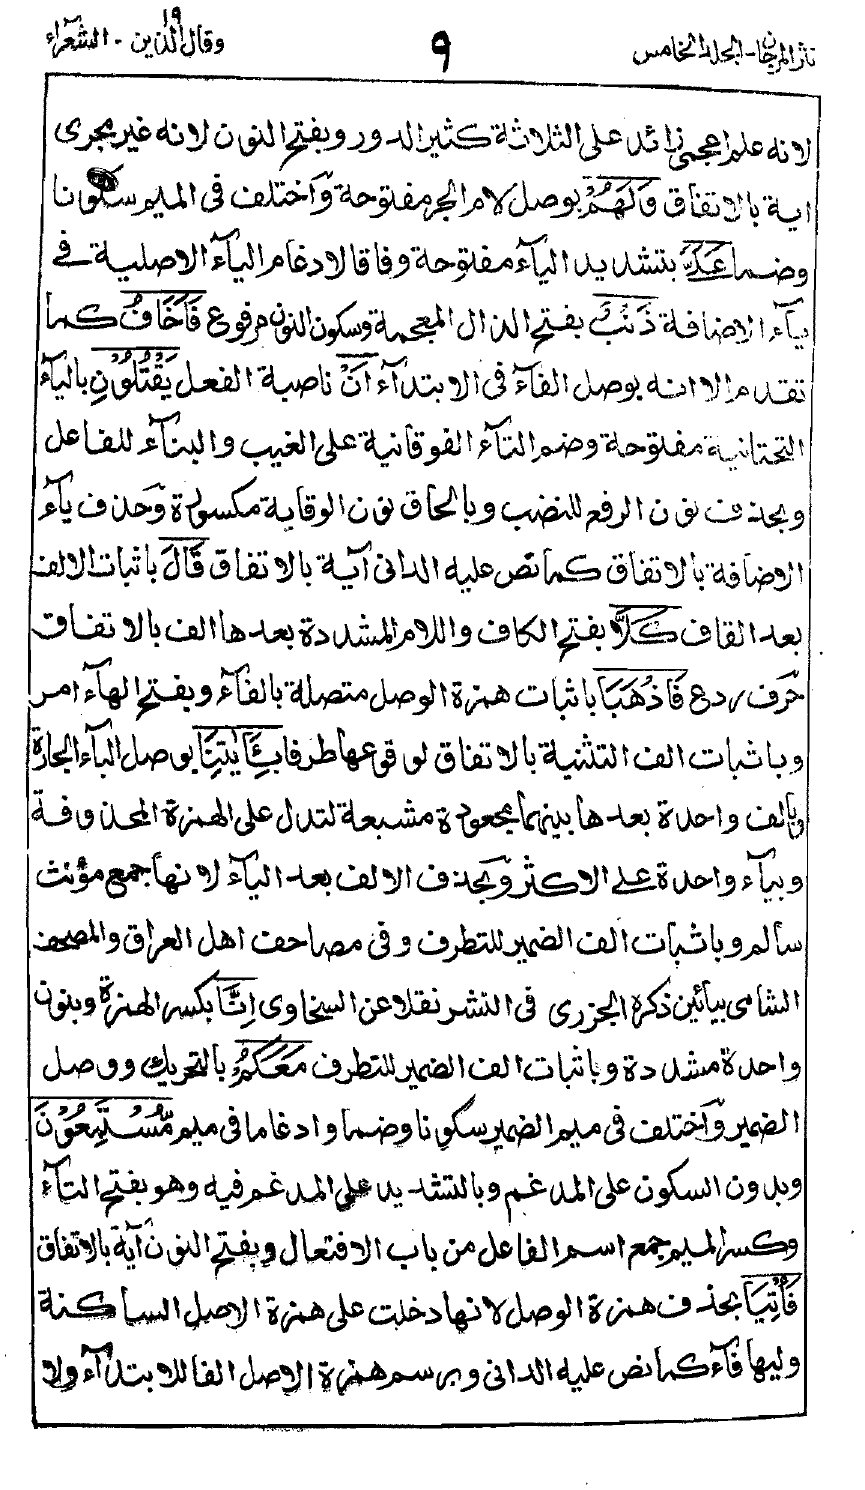 نثر المرجان - المجلد الخامس ٩ وقال الذين ١٩ - الشعراء
لانه علم اعجمى زائد على الثلاثة كثير الدور وبفتح النون لانه غير مجرى
اية بالاتفاق وَلَهُمْ بوصل لام الجر مفتوحة وَاختلف فى الميم سكونا
وضما عَلَىَّ بتشديد الياء مفتوحة وفاقا لادغام الياء الاصلية فى
ياء الاضافة ذَنْبٌ بفتح الذال المعجمة وسكون النون مرفوع فَاَخَافُ كما
تقدم الا انه بوصل الفاء فى الابتداء اَنْ ناصبة الفعل يَقْتُلُوْنِ بالياء
التحتانية مفتوحة وضم التاء الفوقانية على الغيب والبناء للفاعل
وبحذف نون الرفع للنصب وبالحاق نون الوقاية مكسورة وَحذف ياء
الاضافة بالاتفاق كما نص عليه الدانى آية بالاتفاق قَالَ باثبات الالف
بعد القاف كَلَّا بفتح الكاف واللام المشددة بعدها الف بالاتفاق
حَرف ردع فَاذْهَبَا باثبات همزة الوصل متصلة بالفاء وبفتح الهاء امر
وباثبات الف التثنية بالاتفاق لوقوعها طرفا بِـَٔايٰتِنَا بوصل الباء الجارة
وبالف واحدة بعدها بينهما مجعودة مشبعة لتدل على الهمزة المحذوفة
وبياء واحدة على الاكثر وَبحذف الالف بعد الياء لانها جمع مؤنث
سالم وباثبات الف الضمير للتطرف وفى مصاحف اهل العراق والمصحف
الشامى بيائين ذكره الجزرى فى النشر نقلا عن السخاوى اِنَّا بكسر الهمزة وبنون
واحدة مشددة وباثبات الف الضمير للتطرف مَعَكُمْ بالتحريك ووصل
الضمير وَاختلف فى ميم الضمير سكونا وضما وادغاما فى ميم مُّسْتَمِعُوْنَ
وبدون السكون على المدغم وبالتشديد على المدغم فيه وهو بفتح التاء
وكسر الميم جمع اسم الفاعل من باب الافتعال وبفتح النون آية بالاتفاق
فَأْتِيَا بحذف همزة الوصل لانها دخلت على همزة الاصل الساكنة
وليها فاء كما نص عليه الدانى وبرسم همزة الاصل الفا للابتداء ولا